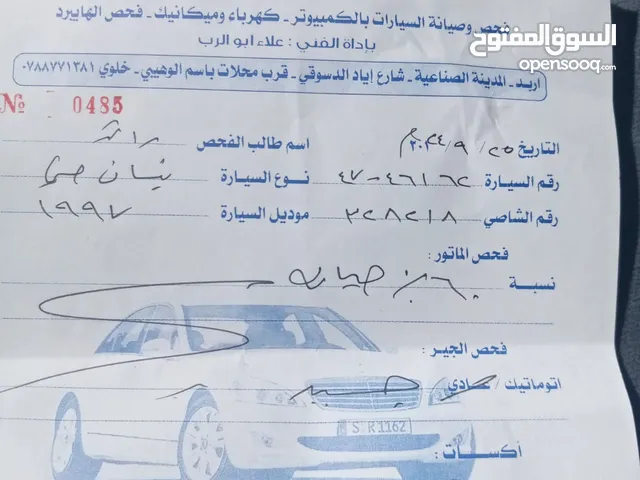 السوق المفتوح
opensooq.com
فحص وصيانة السيارات بالكمبيوتر - كهرباء وميكانيك - فحص الهايبرد
بإدادة الفني : علاء ابو الرب
اربد - المدينة الصناعية - شارع إياد الدسوقي - قرب محلات باسم الوهيبي - خلوي ٠٧٨٨٧٧١٣٨١
№ 0485
التاريخ ٢٥ / ٩ / ٢٠٢٤م اسم طالب الفحص
رقم السيارة ٤٦١٦٢-٤٧ نوع السيارة نيسان
رقم الشاصي ٣٢٨٢١٨ موديل السيارة ١٩٩٧
فحص الماتور :
نسبة
فحص الجير :
اتوماتيك / عادي جيد
S R 1162
أكسات :